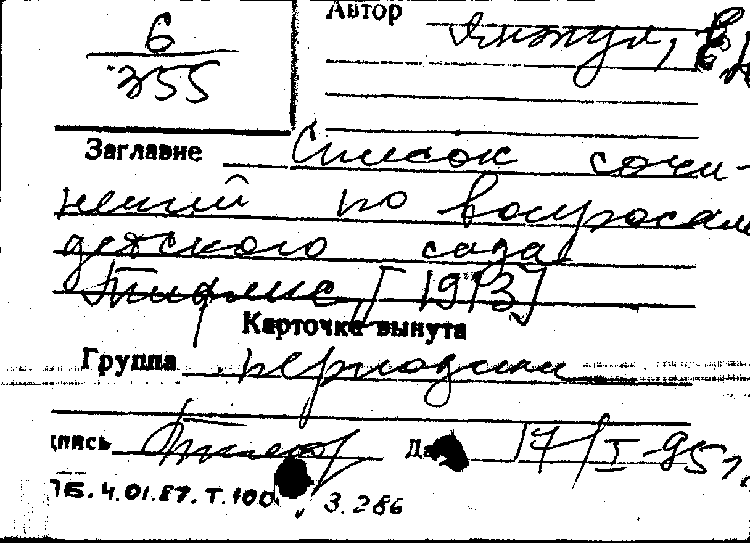 6
355
Автор Янжул, Е.
Заглавие Список сочи-
нений по вопросам
детского сада
Тифлис, [1913]
Карточка вынута
Группа периодики
пись Да 17/I-95 г.
ПБ.4.01.87.Т.100 З.286